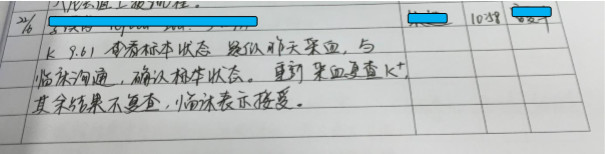 22/6
10:38
K 9.61 查看标本状态 疑似昨天采血，与
临床沟通，确认标本状态。重新采血复查K⁺，
其余结果不复查，临床表示接受。